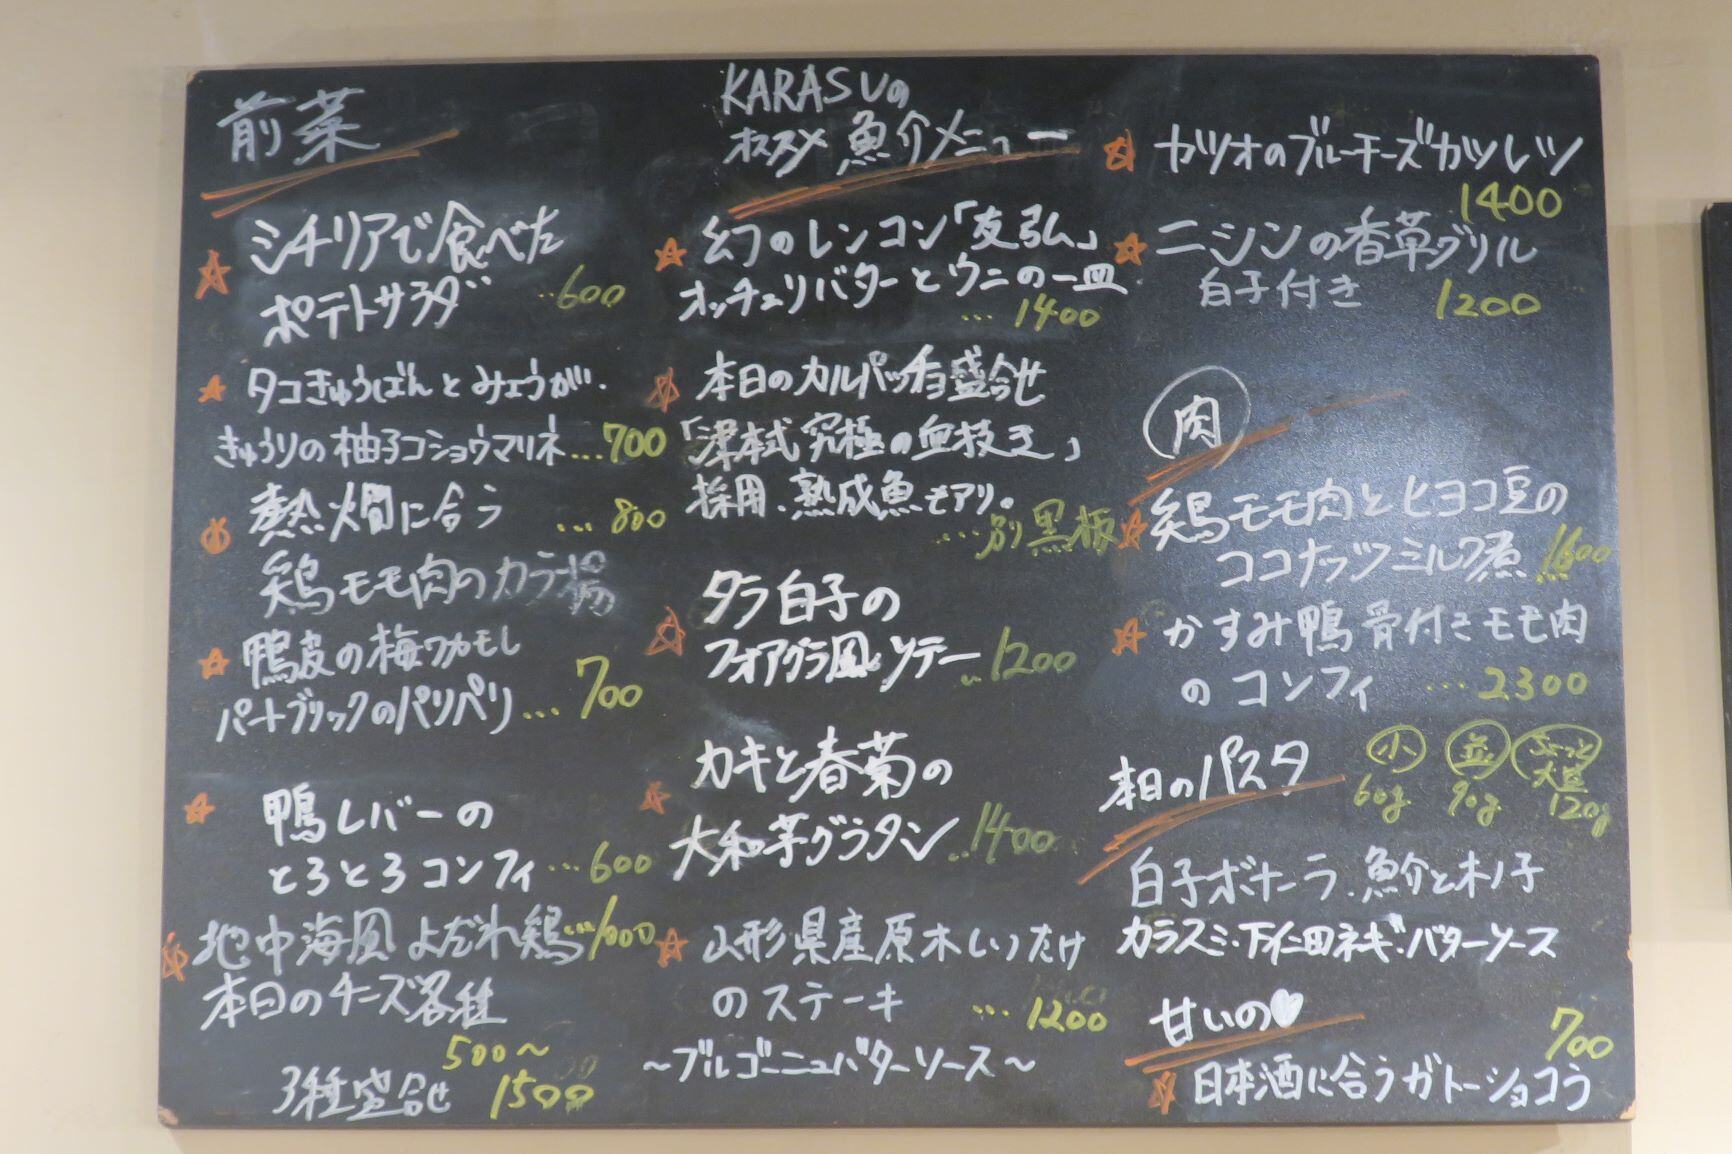 前菜
シチリアで食べた
ポテトサラダ ...600
タコきゅうばんとみょうが・
きゅうりの柚子コショウマリネ...700
熱燗に合う ...800
鶏モモ肉のカラ揚
鴨皮の梅ワカモレ
パートブリックのパリパリ...700
鴨レバーの
とろとろコンフィ...600
地中海風よだれ鶏
本日のチーズ各種
500～
3種盛合せ 1500
KARASUの
オススメ 魚介メニュー
幻のレンコン「友弘」
オッチュリバターとウニの一皿
...1400
本日のカルパッチョ盛合せ
「津本式 究極の血抜き」
採用、熟成魚もアリ。
...別黒板
タラ白子の
フォアグラ風ソテー...1200
カキと春菊の
大和芋グラタン...1400
山形県産原木しいたけ
のステーキ ...1200
～ブルゴーニュバターソース～
カツオのブルーチーズカツレツ
1400
ニシンの香草グリル
白子付き 1200
肉
鶏モモ肉とヒヨコ豆の
ココナッツミルク煮...1600
かすみ鴨骨付きモモ肉
のコンフィ ...2300
本日のパスタ 小 並 ちょっと大盛
60g 90g 120g
白子ボナーラ、魚介とキノ子
カラスミ・下仁田ネギ・バターソース
甘いの♥
700
日本酒に合うガトーショコラ